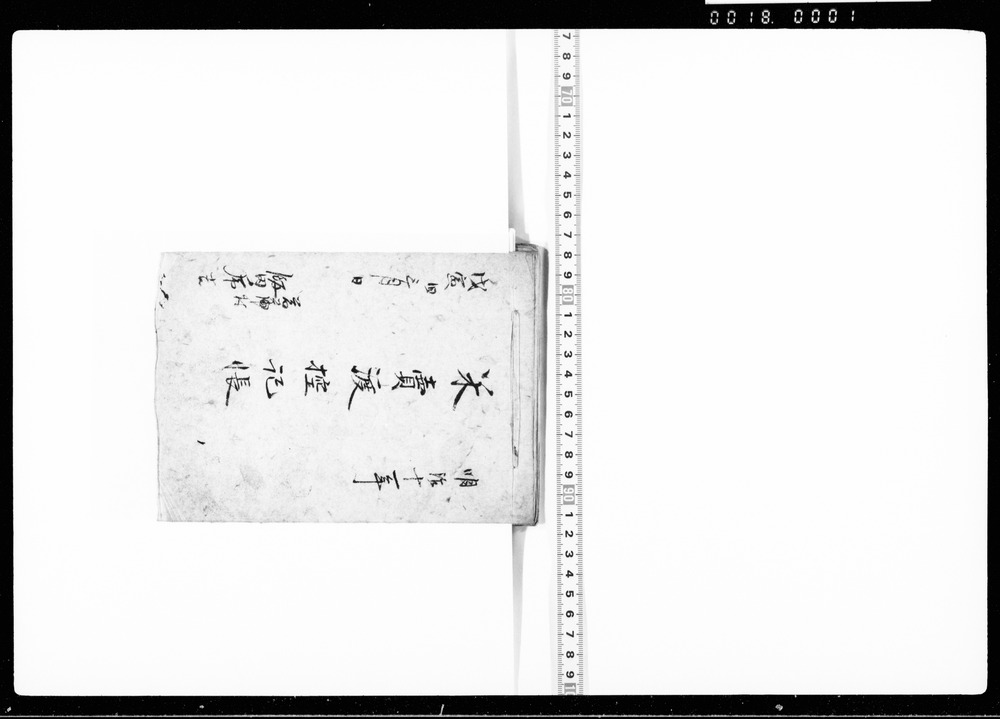 0018. 0001
明治十一年
米賣渡控記帳
戊寅四二月日
7 8 9 70 1 2 3 4 5 6 7 8 9 80 1 2 3 4 5 6 7 8 9 90 1 2 3 4 5 6 7 8 9